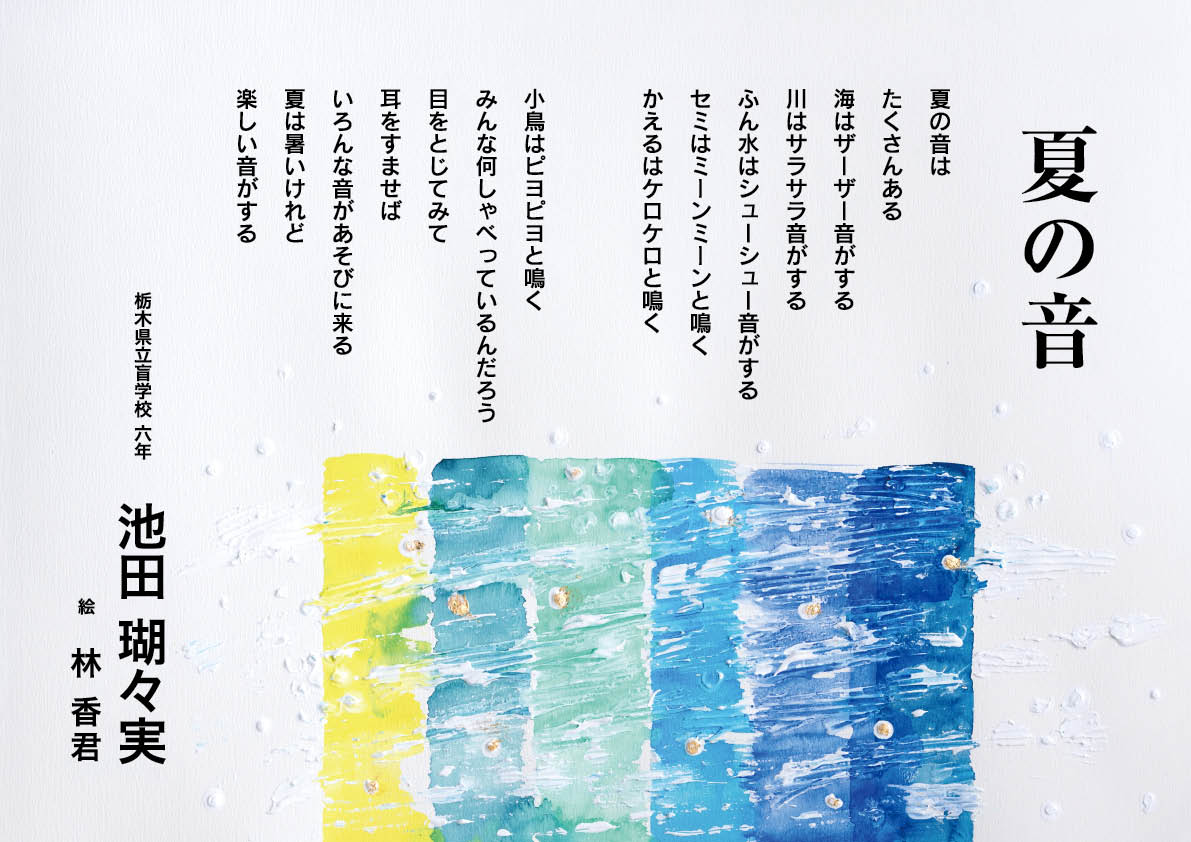 夏の音
夏の音は
たくさんある
海はザーザー音がする
川はサラサラ音がする
ふん水はシューシュー音がする
セミはミーンミーンと鳴く
かえるはケロケロと鳴く
小鳥はピヨピヨと鳴く
みんな何しゃべっているんだろう
目をとじてみて
耳をすませば
いろんな音があそびに来る
夏は暑いけれど
楽しい音がする
栃木県立盲学校 六年
池田 瑚々実
絵 林 香君